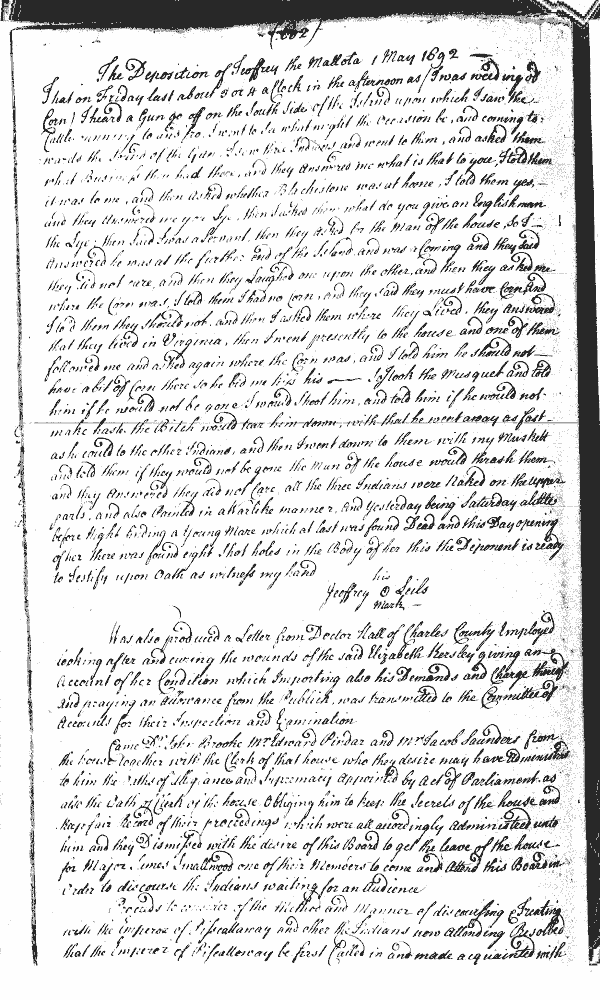 The Deposition of Jeoffrey the Mallota 1 May 1692
That on Friday last about 3 or 4 a Clock in the afternoon as I was weeding of
Corn I heard a Gun go off on the South Side of the Island upon which I saw the
Cattle running to and fro, I went to see what might the occasion be, and coming to-
wards the Sound of the Gun I saw three Indians and went to them, and asked them
what Business they had there, and they Answered me what is that to you, I told them
it was to me, and then asked whether Blachistone was at home, I told them yes,
and they Answered me you Lye, then I asked them what do you give an Englishman
the Lye, then Said I was a Servant, then they Asked for the Man of the house, So I
Answered he was at the further end of the Island, and was a Coming and they Said
they did not care, and then they Laughed one upon the other, and then they asked me
where the Corn was, I told them I had no Corn, and they said they must have Corn and
I told them they should not, and then I asked them where they Lived, they Answered
that they lived in Virginea, then I went presently to the house and one of them
followed me and asked again where the Corn was, and I told him he should not
have a bit of Corn there so he bid me kiss his —— So I took the Musquet and told
him if he would not be gone I would Shoot him, and told him if he would not
make hash the Bitch would tear him down, with that he went away as fast
as he could to the other Indians, and then I went down to them with my Muskett
and told them if they would not be gone the Man of the house would thrash them
and they Answered they did not Care, all the three Indians were Naked on the upper
parts, and also Painted in a Warlike manner, And Yesterday being Saturday a little
before Night finding a Young Mare which at last was found Dead and this Day opening
of her there was found eight Shot holes in the Body of her this the Deponent is ready
to testify upon Oath as witness my hand
his
Jeoffrey O Seils
Mark
Was also produced a Letter from Doctor Hall of Charles County Employed
looking after and curing the wounds of the said Elizabeth Kersley giving an
Account of her Condition which Importing also his Demands and Charge thereof
and praying an Allowance from the Publick, was transmitted to the Committee of
Accounts for their Inspection and Examination
Came Dr. John Brooke Mr. Edward Pindar and Mr. Jacob Saunders from
the house together with the Clerk of that house who they desire may have Administred
to him the Oaths of Allegiance and Supremacy Appointed by Act of Parliament as
also the Oath of Clerk of the house Obliging him to keep the Secrets of the house and
keep fair Record of their proceedings which were all accordingly Administred unto
him and they Dismissed with the desire of this Board to get the leave of the house
for Major James Smallwood one of their Members to come and Attend this Board in
Order to discourse the Indians waiting for an Audience
Proceeds to consider of the Method and Manner of discoursing & Treating
with the Emperor of Piscattaway and other the Indians now Attending Resolved
that the Emperor of Piscattaway be first Called in and made acquainted with